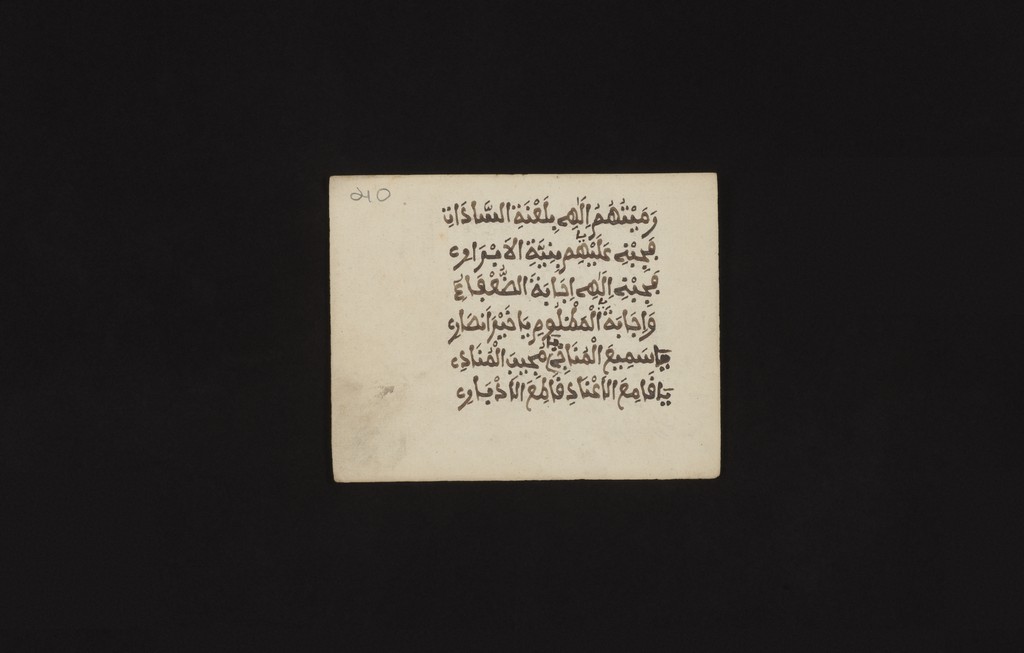 رَمَيْتُهُمُ إِلَٰهِى بِلَعْنَةِ السَّادَاتِ
فَجِبْنِى عَلَيْهِم بِنِيَّةِ الَابْرَارِ
فَجِبْنِى إِلَٰهِى اِجَابَةَ الضُّعَفَاءِ
وَاِجَابَةَ الْمَظْلُومِ يَا خَيْرَ اَنصَارِ
يَا سَمِيعَ الْمُنَاجِى يَا مُجِيبَ الْمُنَادِ
يَا قَامِعَ الَاعْنَادِ قَالِعَ الَادْبَارِ